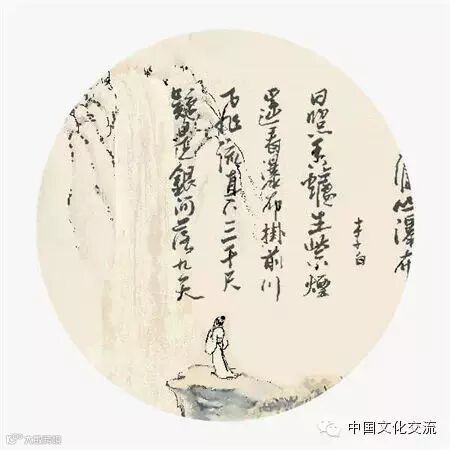 山瀑布
李白
日照香爐生紫煙
遙看瀑布掛前川
飛流直下三千尺
疑是銀河落九天
中国文化交流